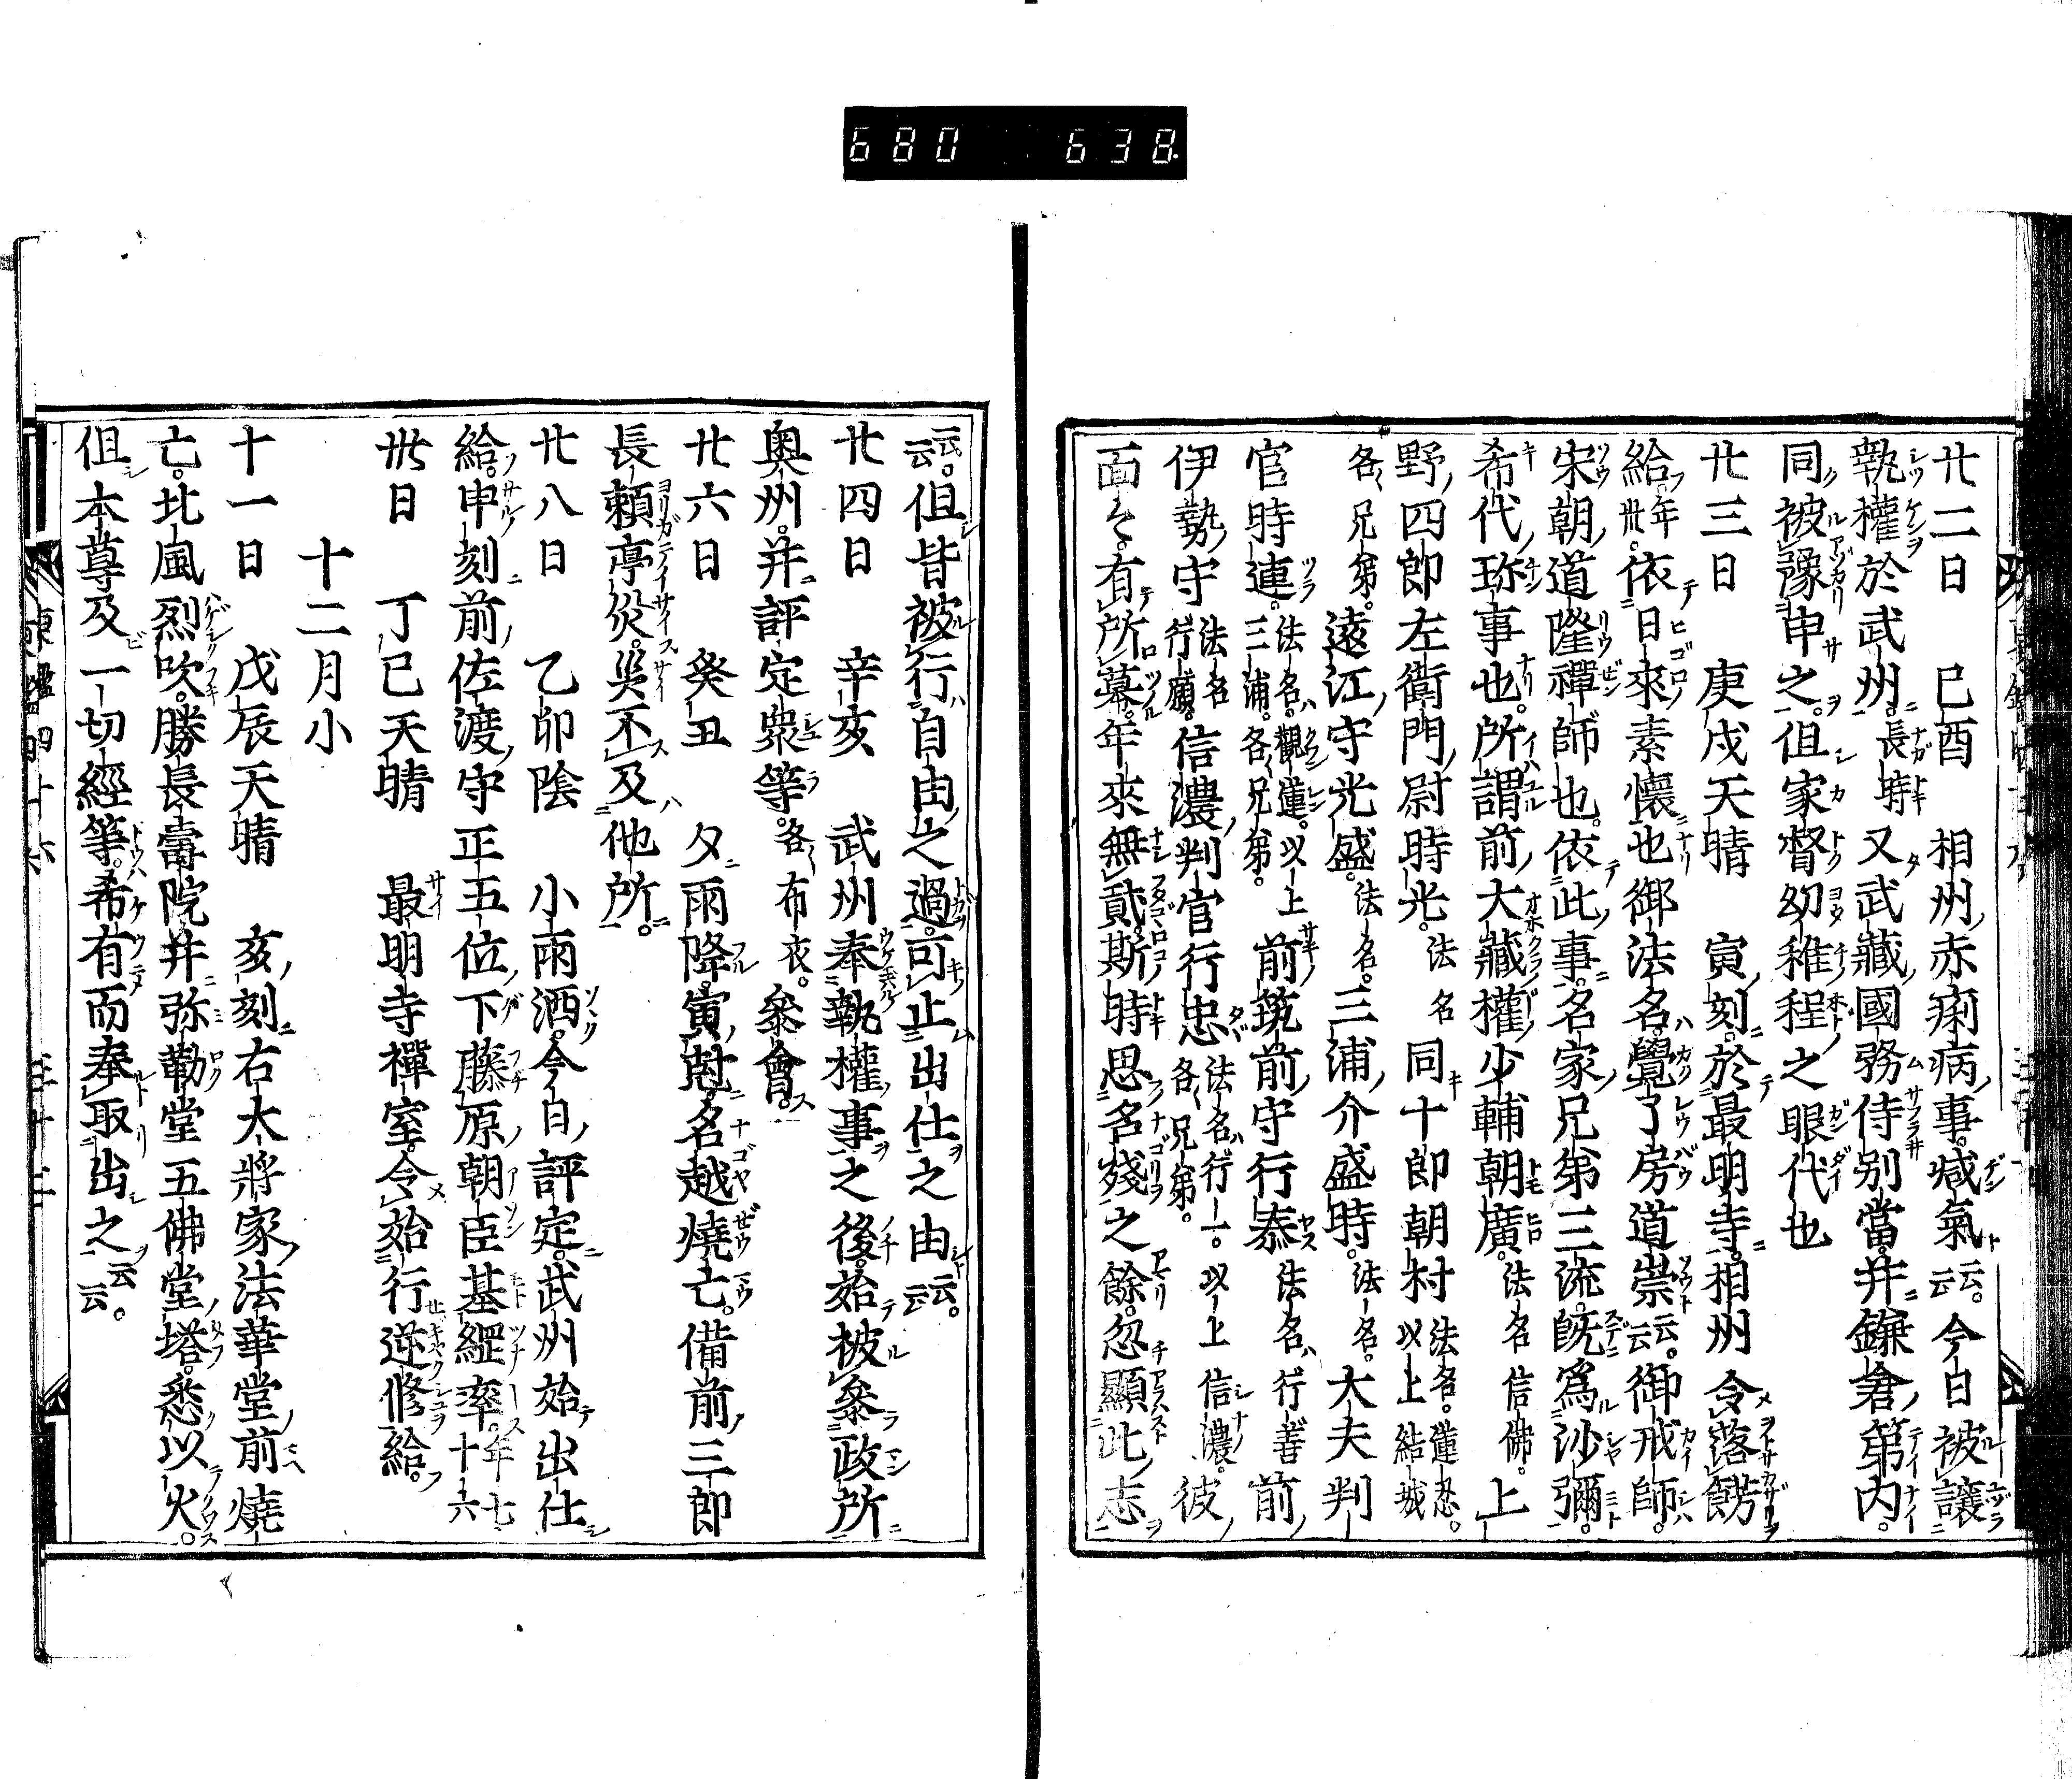 680 638.
廿二日 巳酉 相州赤痢病事。減氣云云。今日被讓
執權於武州。長時又武藏國務侍別當。并鎌倉第内。
同被豫申之。但家督幼稚程之眼代也
廿三日 庚戌天晴 寅刻於最明寺。相州令落餝
給。年卅。依日來素懷也御法名覺了房道崇云云。御戒師。
宋朝道隆禪師也。依此事。名家兄弟三流既爲沙彌。
希代珎事也。所謂前大藏權少輔朝廣。法名信佛。上
野四郎左衛門尉時光。法名同十郎朝村法名蓮忍。以上結城
各兄弟。遠江守光盛。法名。三浦介盛時。法名。大夫判
官時連。法名觀蓮。以上三浦。各兄弟。前筑前守行泰法名行善前
伊勢守法名行願。信濃判官行忠法名行一。以上信濃。各兄弟。彼
面々。有所慕。年來無貳。斯時思名殘之餘。忽顯此志
云云。但皆被行自由之過。可止出仕之由云云。
廿四日 辛亥 武州奉執權事之後。始被參政所
奥州。并評定衆等。各布衣。參會。
廿六日 癸丑 夕雨降。寅尅。名越燒亡。備前三郎
長頼亭災。災不及他所。
廿八日 乙卯陰 小雨洒。今日評定。武州始出仕
給。申刻前佐渡守正五位下藤原朝臣基綱卒。年七十六
卅日 丁巳天晴 最明寺禪室。令始行逆修給。
十二月小
十一日 戊辰天晴 亥刻右大將家法華堂前燒
亡。北風烈吹。勝長壽院并弥勒堂五佛堂塔。悉以火。
但本尊及一切經等。希有而奉取出之云云。
東鑑四十六